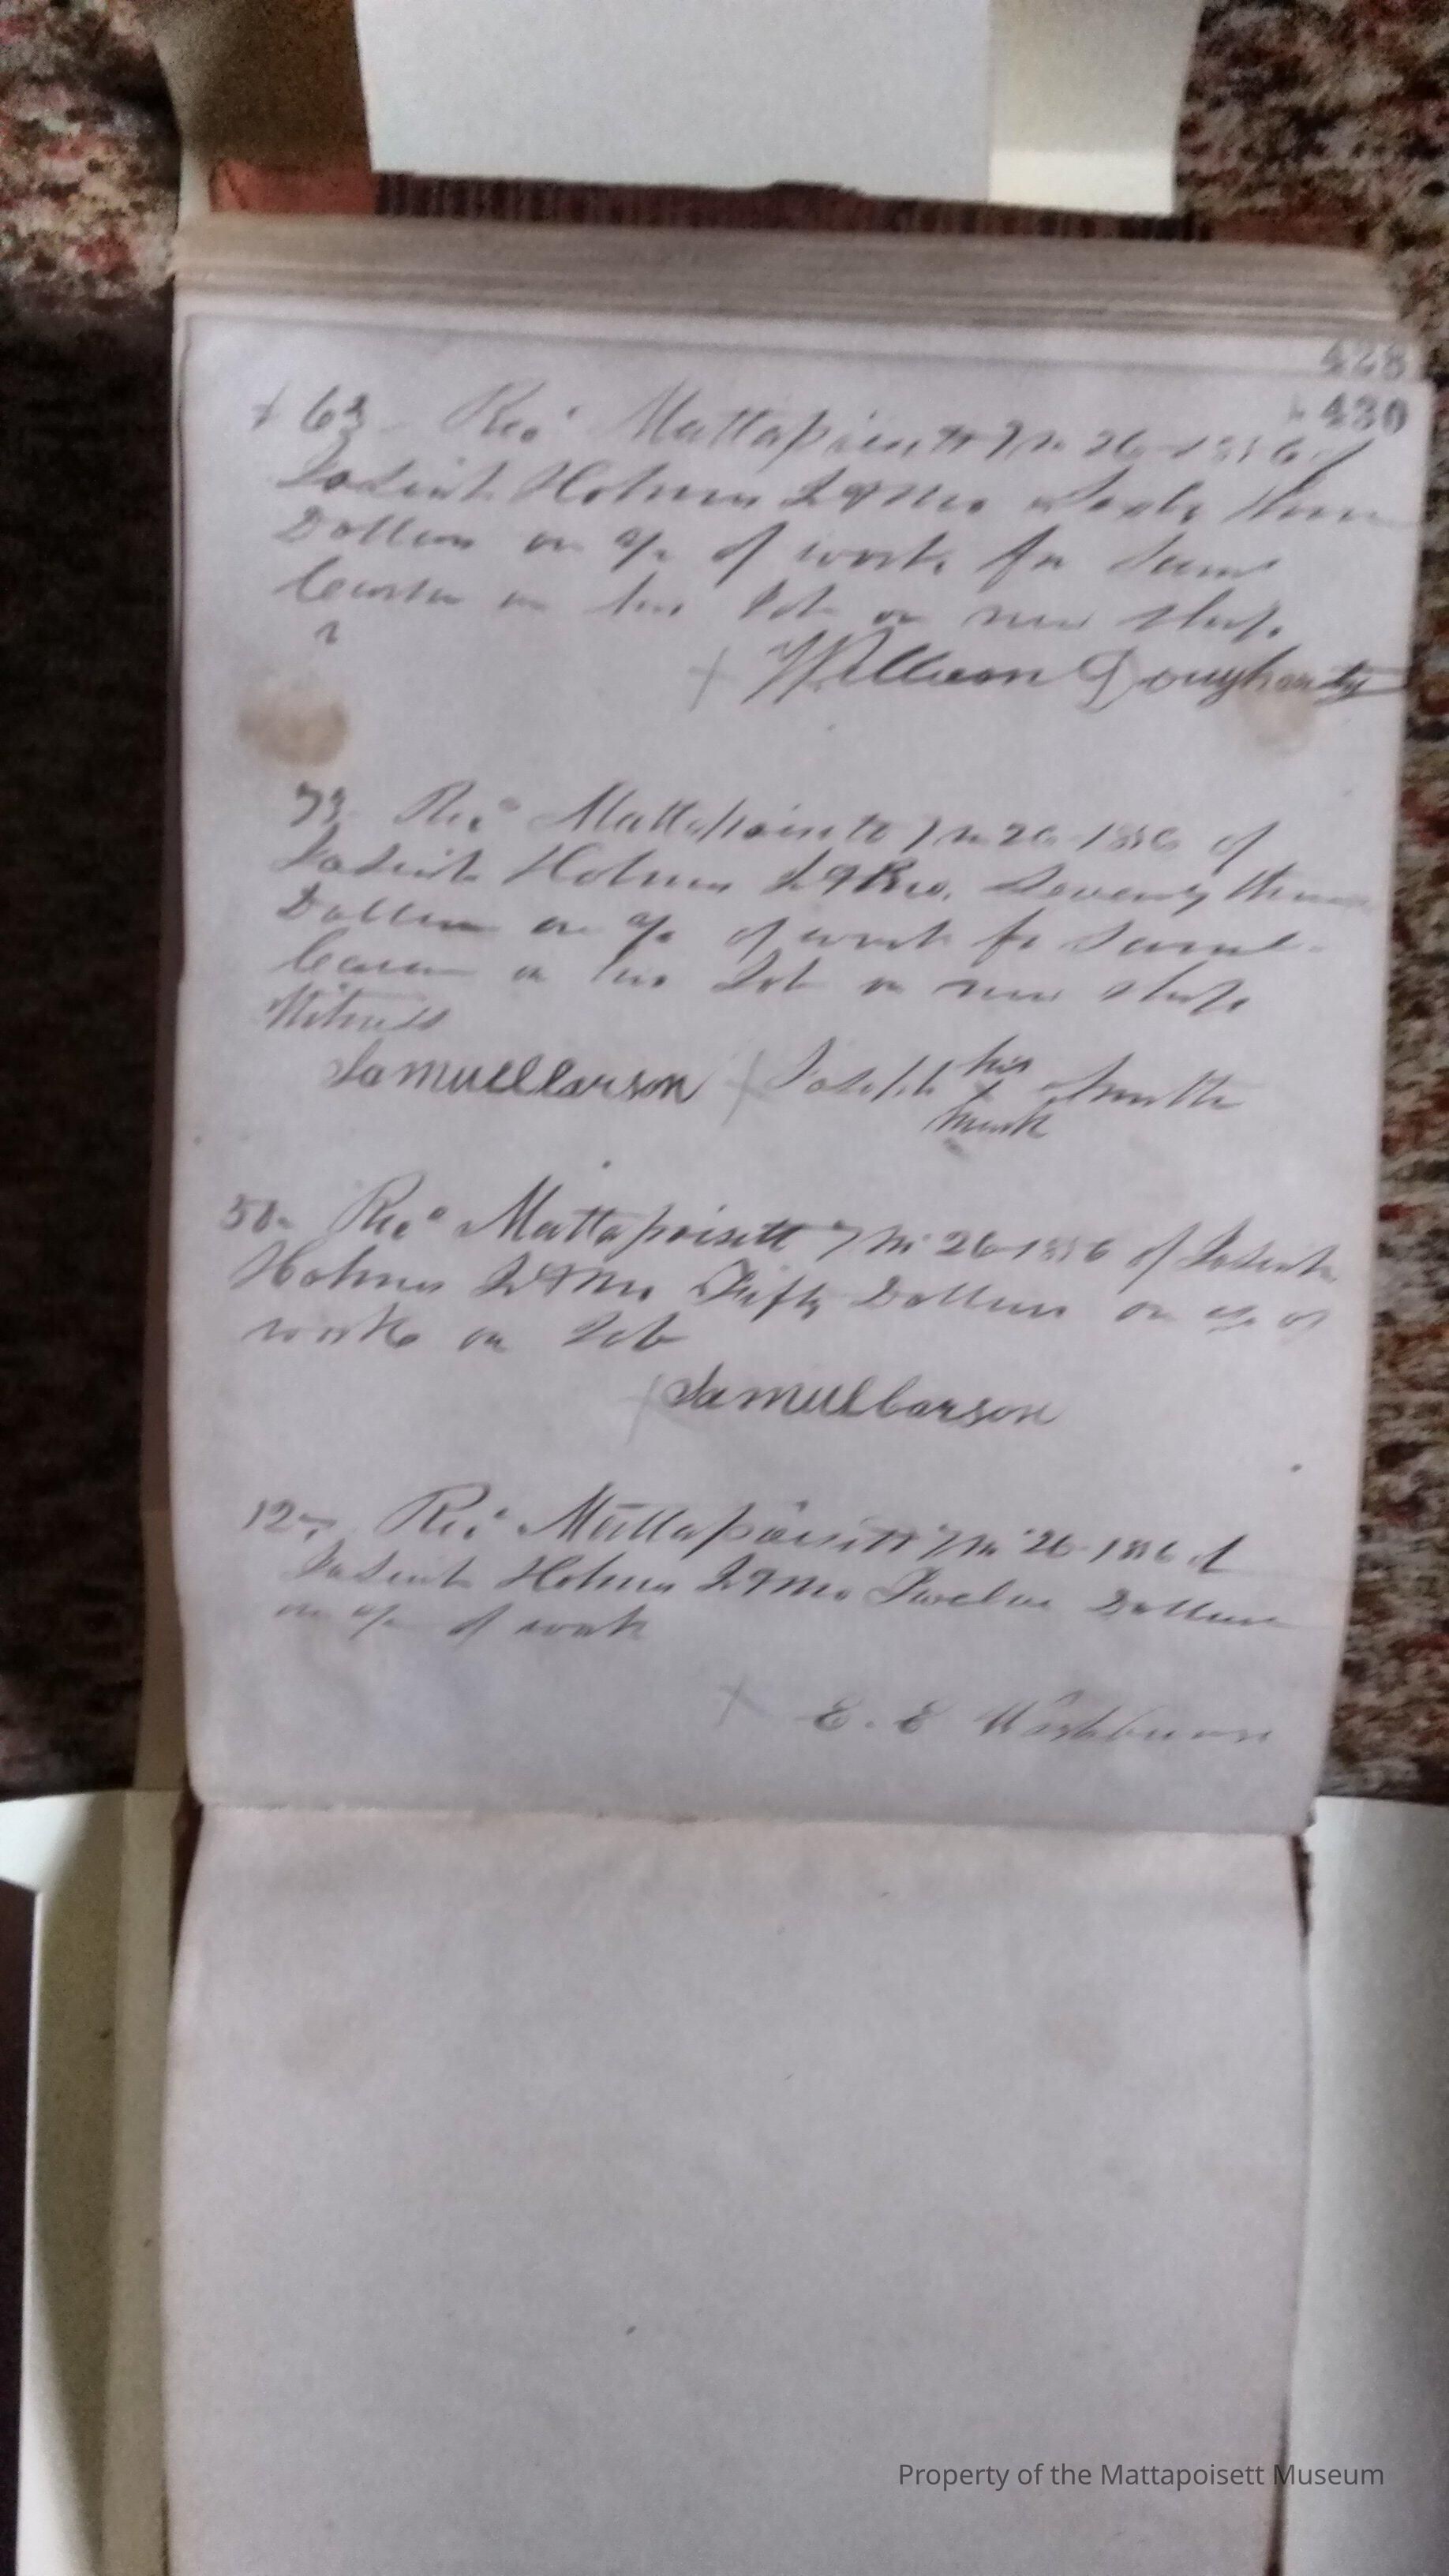 428
430
+ 63- Rec'd Mattapoisett 7 Mo 26-1856 of
Josiah Holmes Jr & Bro Sixty three
Dollars on a/c of work for Saml
Carson on his Job on new ship.
+ William Dougharty
73- Rec'd Mattapoisett 7 Mo 26-1856 of
Josiah Holmes Jr & Bro. Seventy three
Dollars on a/c of work for Saml
Carson on his Job on new ship
Witness
Samuel Carson + Joseph his x mark Smith
50- Rec'd Mattapoisett 7 Mo 26-1856 of Josiah
Holmes Jr & Bro Fifty Dollars on a/c of
work on Job
+ Samuel Carson
12- Rec'd Mattapoisett 7 Mo 26-1856 of
Josiah Holmes Jr & Bro Twelve Dollars
on a/c of work
x E. E Washburn
Property of the Mattapoisett Museum